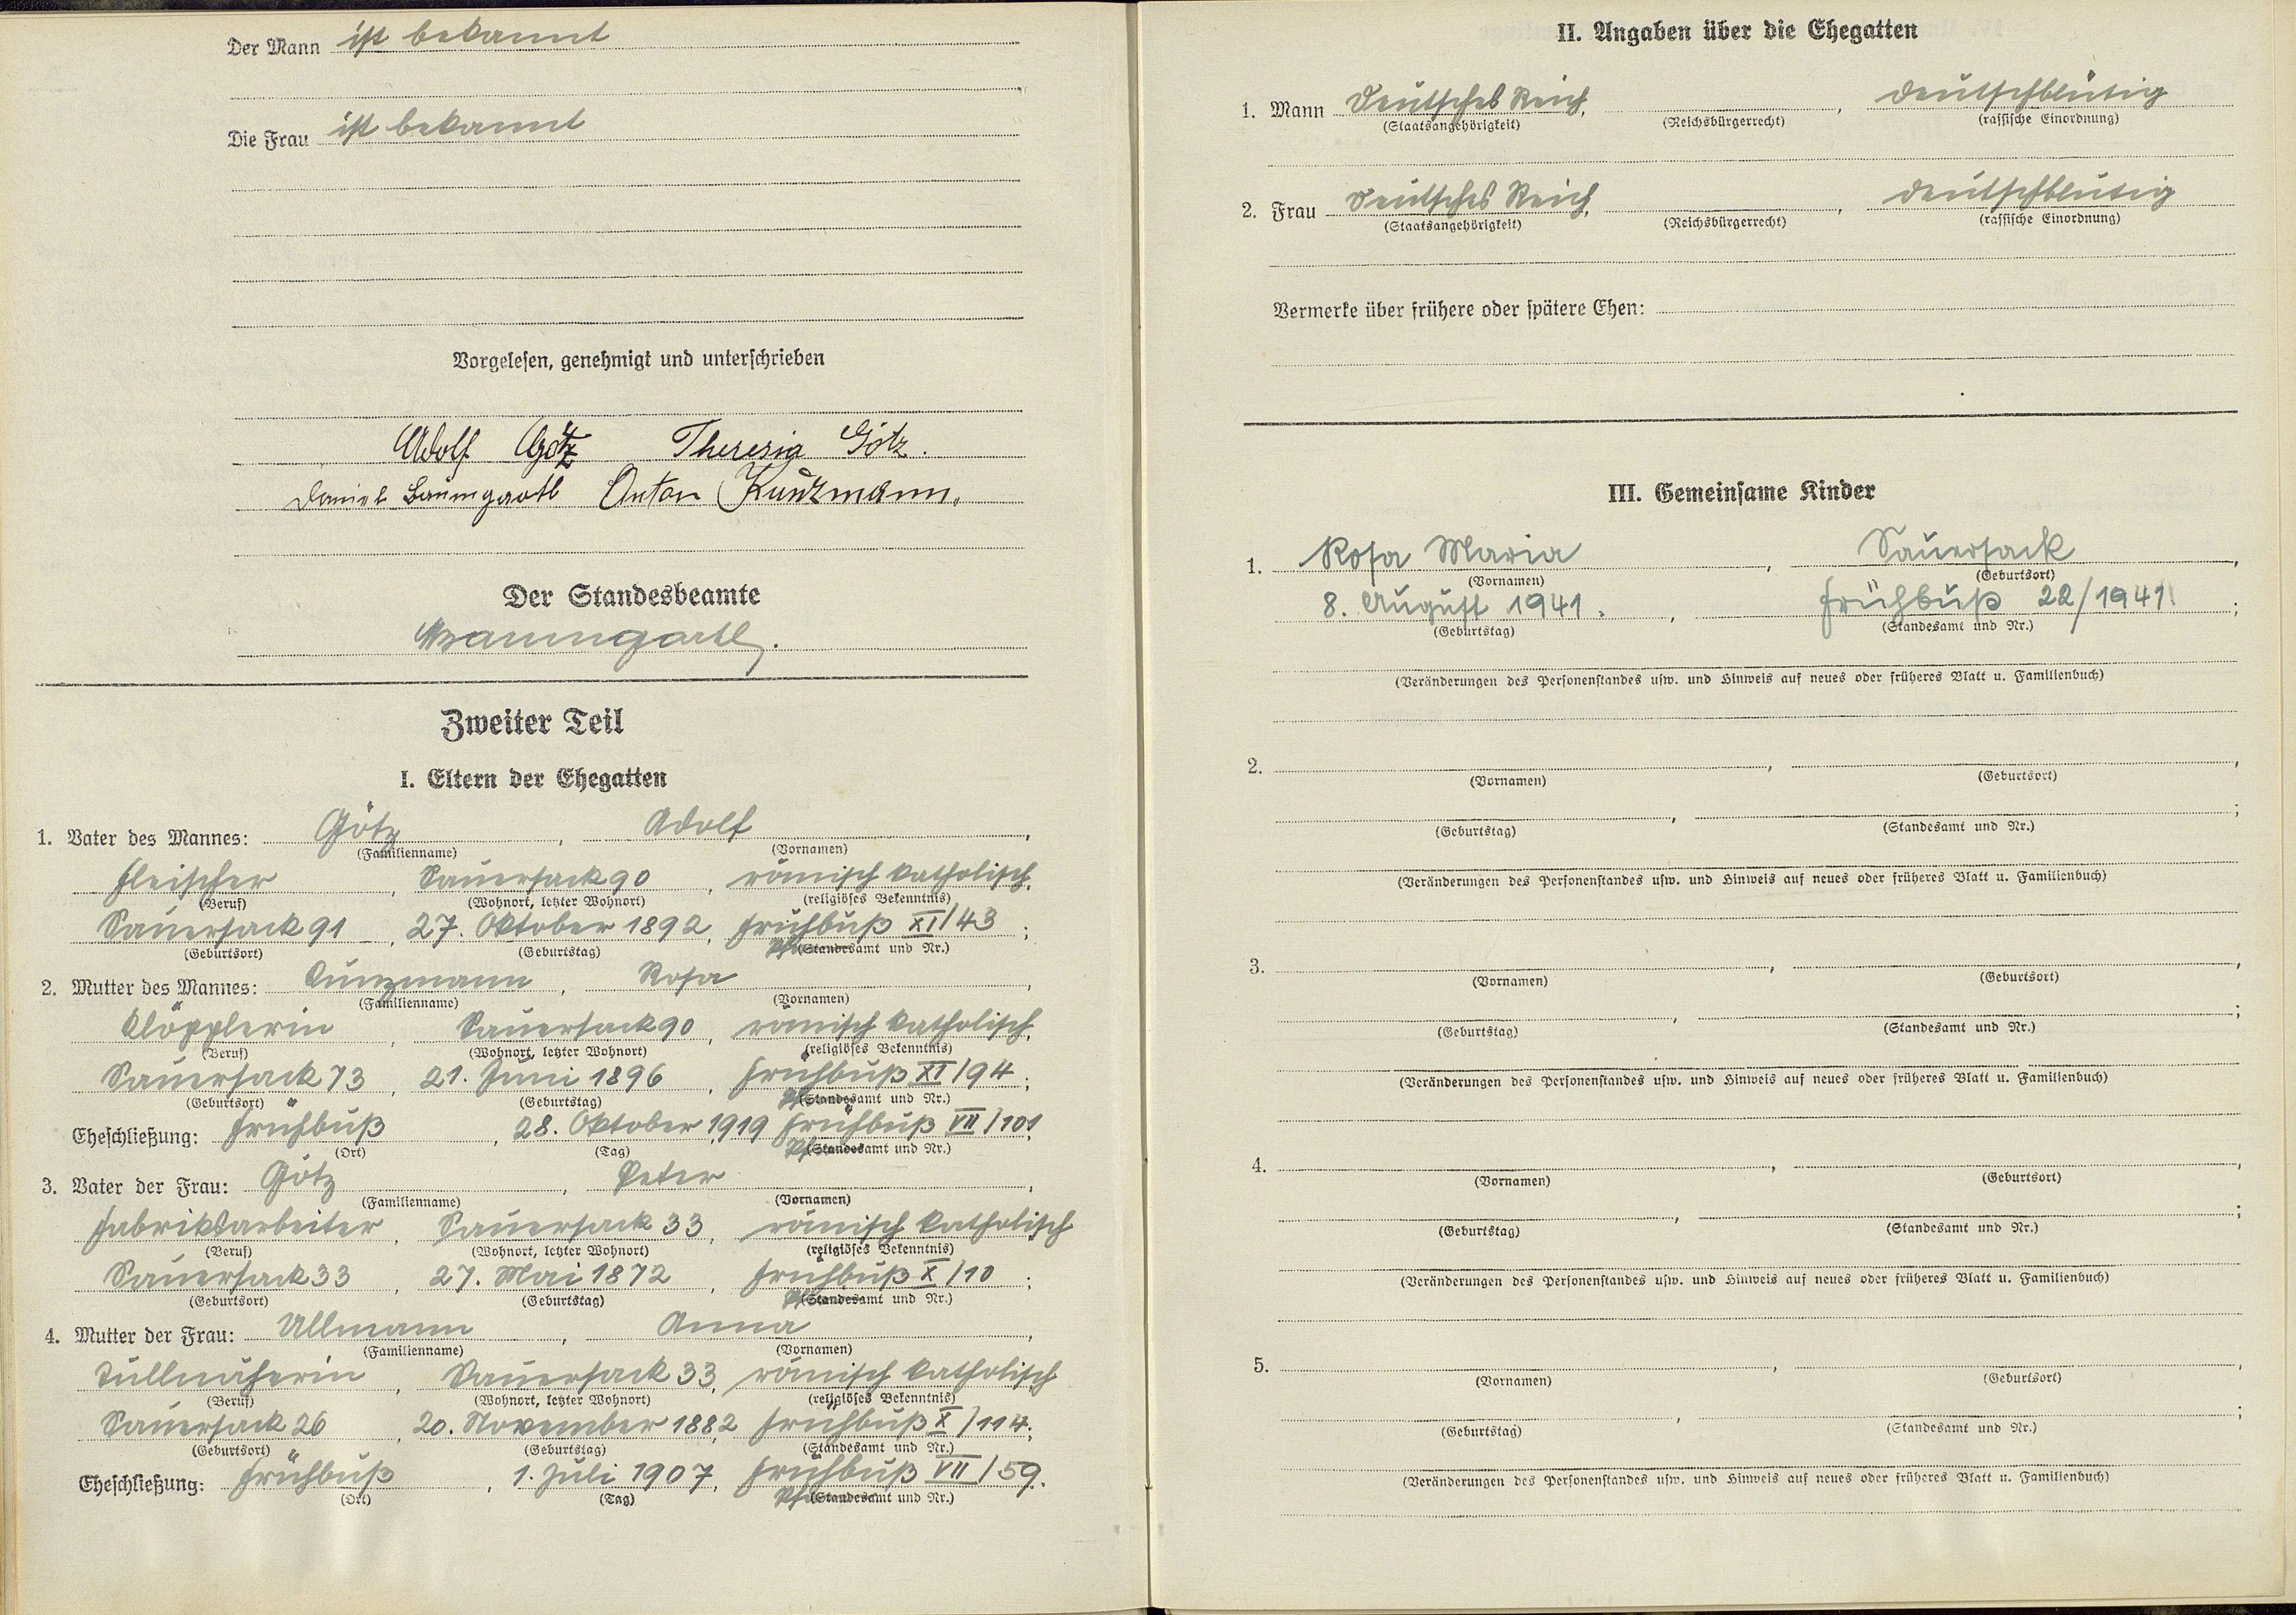 Der Mann ist bekannt
Die Frau ist bekannt
Vorgelesen, genehmigt und unterschrieben
Adolf Götz Theresia Götz.
Daniel Baumgartl Anton Kunzmann.
Der Standesbeamte
Baumgartl.
Zweiter Teil
I. Eltern der Ehegatten
1. Vater des Mannes: Götz, Adolf,
(Familienname) (Vornamen)
Fleischer, Sauersack 90, römisch katholisch,
(Beruf) (Wohnort, letzter Wohnort) (religiöses Bekenntnis)
Sauersack 91, 27. Oktober 1892, Frühbuß XI/43;
(Geburtsort) (Geburtstag) (Standesamt und Nr.)
2. Mutter des Mannes: Kunzmann, Rosa,
(Familienname) (Vornamen)
Klöpplerin, Sauersack 90, römisch katholisch,
(Beruf) (Wohnort, letzter Wohnort) (religiöses Bekenntnis)
Sauersack 73, 21. Juni 1896, Frühbuß XI/94;
(Geburtsort) (Geburtstag) (Standesamt und Nr.)
Eheschließung: Frühbuß, 28. Oktober 1919 Frühbuß VII/101
(Ort) (Tag) (Standesamt und Nr.)
3. Vater der Frau: Götz, Peter,
(Familienname) (Vornamen)
Fabriksarbeiter, Sauersack 33, römisch katholisch
(Beruf) (Wohnort, letzter Wohnort) (religiöses Bekenntnis)
Sauersack 33, 27. Mai 1872, Frühbuß X/10;
(Geburtsort) (Geburtstag) (Standesamt und Nr.)
4. Mutter der Frau: Ullmann, Anna,
(Familienname) (Vornamen)
Tüllnäherin, Sauersack 33, römisch katholisch
(Beruf) (Wohnort, letzter Wohnort) (religiöses Bekenntnis)
Sauersack 26, 20. November 1882 Frühbuß X/114;
(Geburtsort) (Geburtstag) (Standesamt und Nr.)
Eheschließung: Frühbuß, 1. Juli 1907, Frühbuß VII/59.
(Ort) (Tag) (Standesamt und Nr.)
II. Angaben über die Ehegatten
1. Mann Deutsches Reich, , deutschblütig
(Staatsangehörigkeit) (Reichsbürgerrecht) (rassische Einordnung)
2. Frau Deutsches Reich, , deutschblütig
(Staatsangehörigkeit) (Reichsbürgerrecht) (rassische Einordnung)
Vermerke über frühere oder spätere Ehen:
III. Gemeinsame Kinder
1. Rosa Maria, Sauersack,
(Vornamen) (Geburtsort)
8. August 1941., Frühbuß 22/1941;
(Geburtstag) (Standesamt und Nr.)
(Veränderungen des Personenstandes usw. und Hinweis auf neues oder früheres Blatt u. Familienbuch)
2. , ,
(Vornamen) (Geburtsort)
, ;
(Geburtstag) (Standesamt und Nr.)
(Veränderungen des Personenstandes usw. und Hinweis auf neues oder früheres Blatt u. Familienbuch)
3. , ,
(Vornamen) (Geburtsort)
, ;
(Geburtstag) (Standesamt und Nr.)
(Veränderungen des Personenstandes usw. und Hinweis auf neues oder früheres Blatt u. Familienbuch)
4. , ,
(Vornamen) (Geburtsort)
, ;
(Geburtstag) (Standesamt und Nr.)
(Veränderungen des Personenstandes usw. und Hinweis auf neues oder früheres Blatt u. Familienbuch)
5. , ,
(Vornamen) (Geburtsort)
, ;
(Geburtstag) (Standesamt und Nr.)
(Veränderungen des Personenstandes usw. und Hinweis auf neues oder früheres Blatt u. Familienbuch)